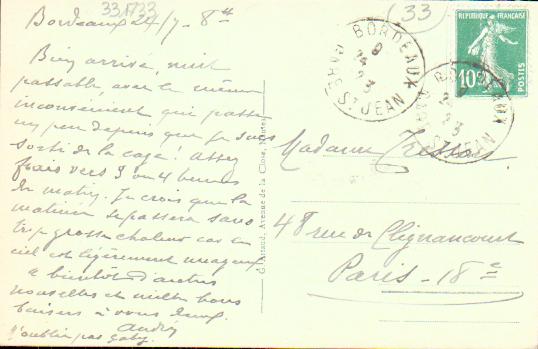 33,1733
(33
Bordeaux 24/7 - 8H
Bien arrivé, nuit
passable, avec le même
inconvénient qui passe
un peu depuis que je suis
sorti de la cage! Assez
frais vers 3 ou 4 heures
du matin. Je crois que la
matinée se passera sans
trop grosse chaleur car le
ciel est légèrement nuageux
à bientôt d'autres
nouvelles et mille bons
baisers à vous deux.
André
n'oublie pas Gaby.
C. Artaud, Avenue de la Close, Nantes
BORDEAUX
GARE ST JEAN
REPUBLIQUE FRANÇAISE
10c
POSTES
BORDEAUX
GARE ST JEAN
Madame
48 rue de Clignancourt
Paris - 18e